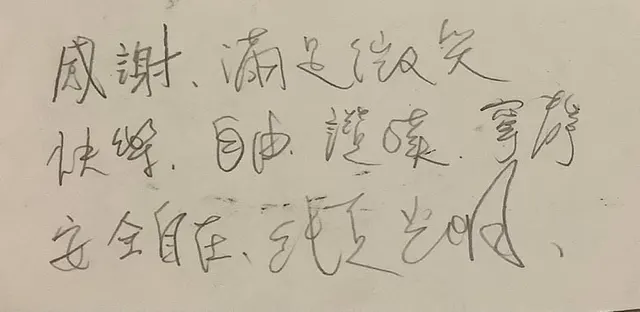 感謝、滿足微笑
快樂、自由、讚嘆、寧靜
安全自在、純真光明、